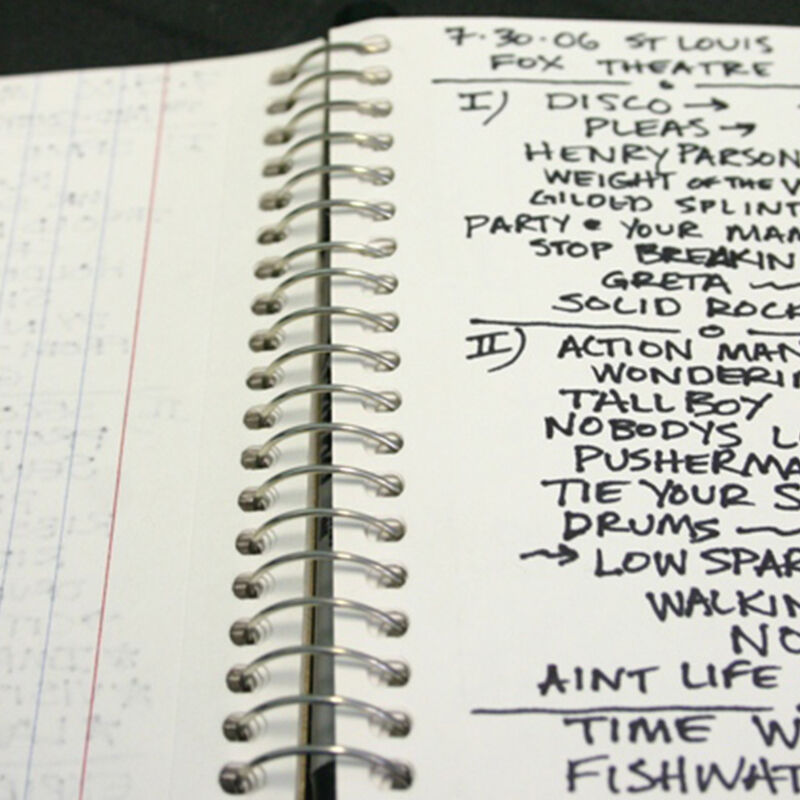 7.30.06 ST LOUIS
FOX THEATRE
I) DISCO →
PLEAS →
HENRY PARSON
WEIGHT OF THE V
GILDED SPLINT
PARTY @ YOUR MAM
STOP BREAKIN
GRETA ~
SOLID ROCK
II) ACTION MAN
WONDERIN
TALL BOY
NOBODYS L
PUSHERMA
TIE YOUR S
DRUMS ~
→ LOW SPAR
WALKIN
NO
AINT LIFE
TIME W
FISHWAT